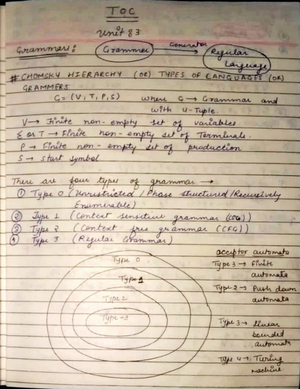 TOC
Unit 3
Grammars: Grammar Generator Regular Language
# CHOMSKY HIERARCHY (OR) TYPES OF LANGUAGES (OR)
GRAMMERS
G = (V, T, P, S) where G → Grammar and
with 4-Tuple.
V → Finite non-empty set of variables
Σ or T → Finite non-empty set of Terminals
P → Finite non-empty set of production
S → Start symbol
There are four types of grammar →
① Type 0 (Unrestricted / Phase structured / Recursively
Enumerable)
② Type 1 (Context sensitive grammar (CSG))
③ Type 2 (Context free grammar (CFG))
④ Type 3 (Regular Grammar)
acceptor automata
Type 0
Type 1
Type 2
Type-3
Type 3 → Finite
automata
Type 2 → Push down
automata
Type 3 → linear
bounded
automata
Type 4 → Turing
Machine